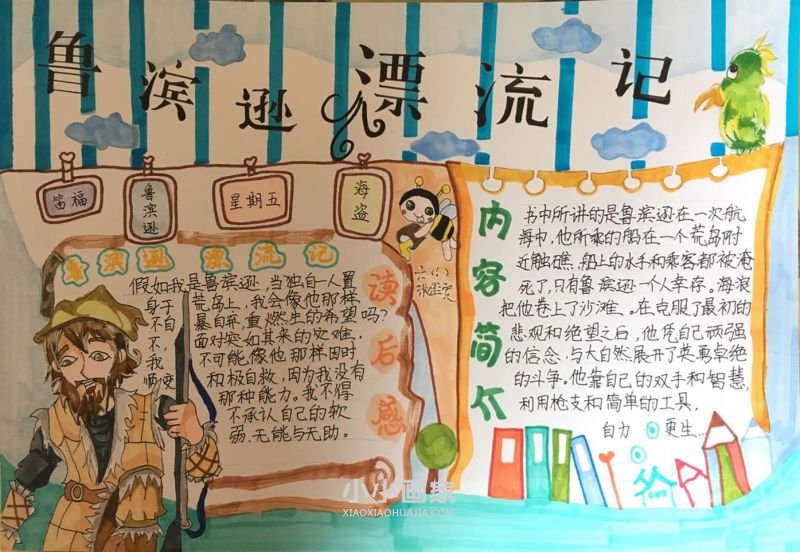 鲁滨逊漂流记
笛福
鲁滨逊
星期五
海盗
鲁滨逊漂流记
读后感
假如我是鲁滨逊,当独自一人置
身于荒岛上,我会像他那样
不自暴自弃,重燃生的希望吗?
不,面对突如其来的灾难,
我不可能像他那样因时
和极自救,因为我没有
那种能力。我不得
不承认自己的软
弱、无能与无助。
六(八)
内容简介
书中所讲的是鲁滨逊在一次航
海中,他所乘的船在一个荒岛附
近触礁,船上的水手和乘客都被淹
死了,只有鲁滨逊一个人幸存。海浪
把他卷上了沙滩。在克服了最初的
悲观和绝望之后,他凭自己顽强
的信念,与大自然展开了英勇卓绝
的斗争。他靠自己的双手和智慧,
利用枪支和简单的工具,
自力更生...
小小画家
XIAOXIAOHUAJIA.COM